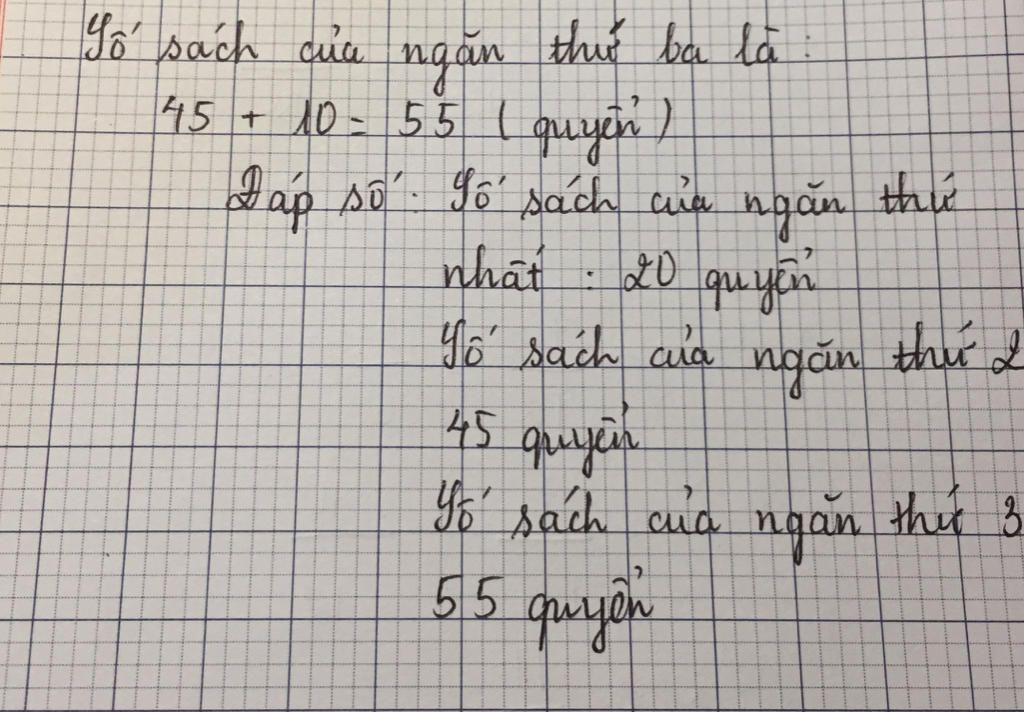 Số sách của ngăn thứ ba là:
45 + 10 = 55 (quyển)
Đáp số: Số sách của ngăn thứ
nhất: 20 quyển
Số sách của ngăn thứ 2
45 quyển
Số sách của ngăn thứ 3
55 quyển